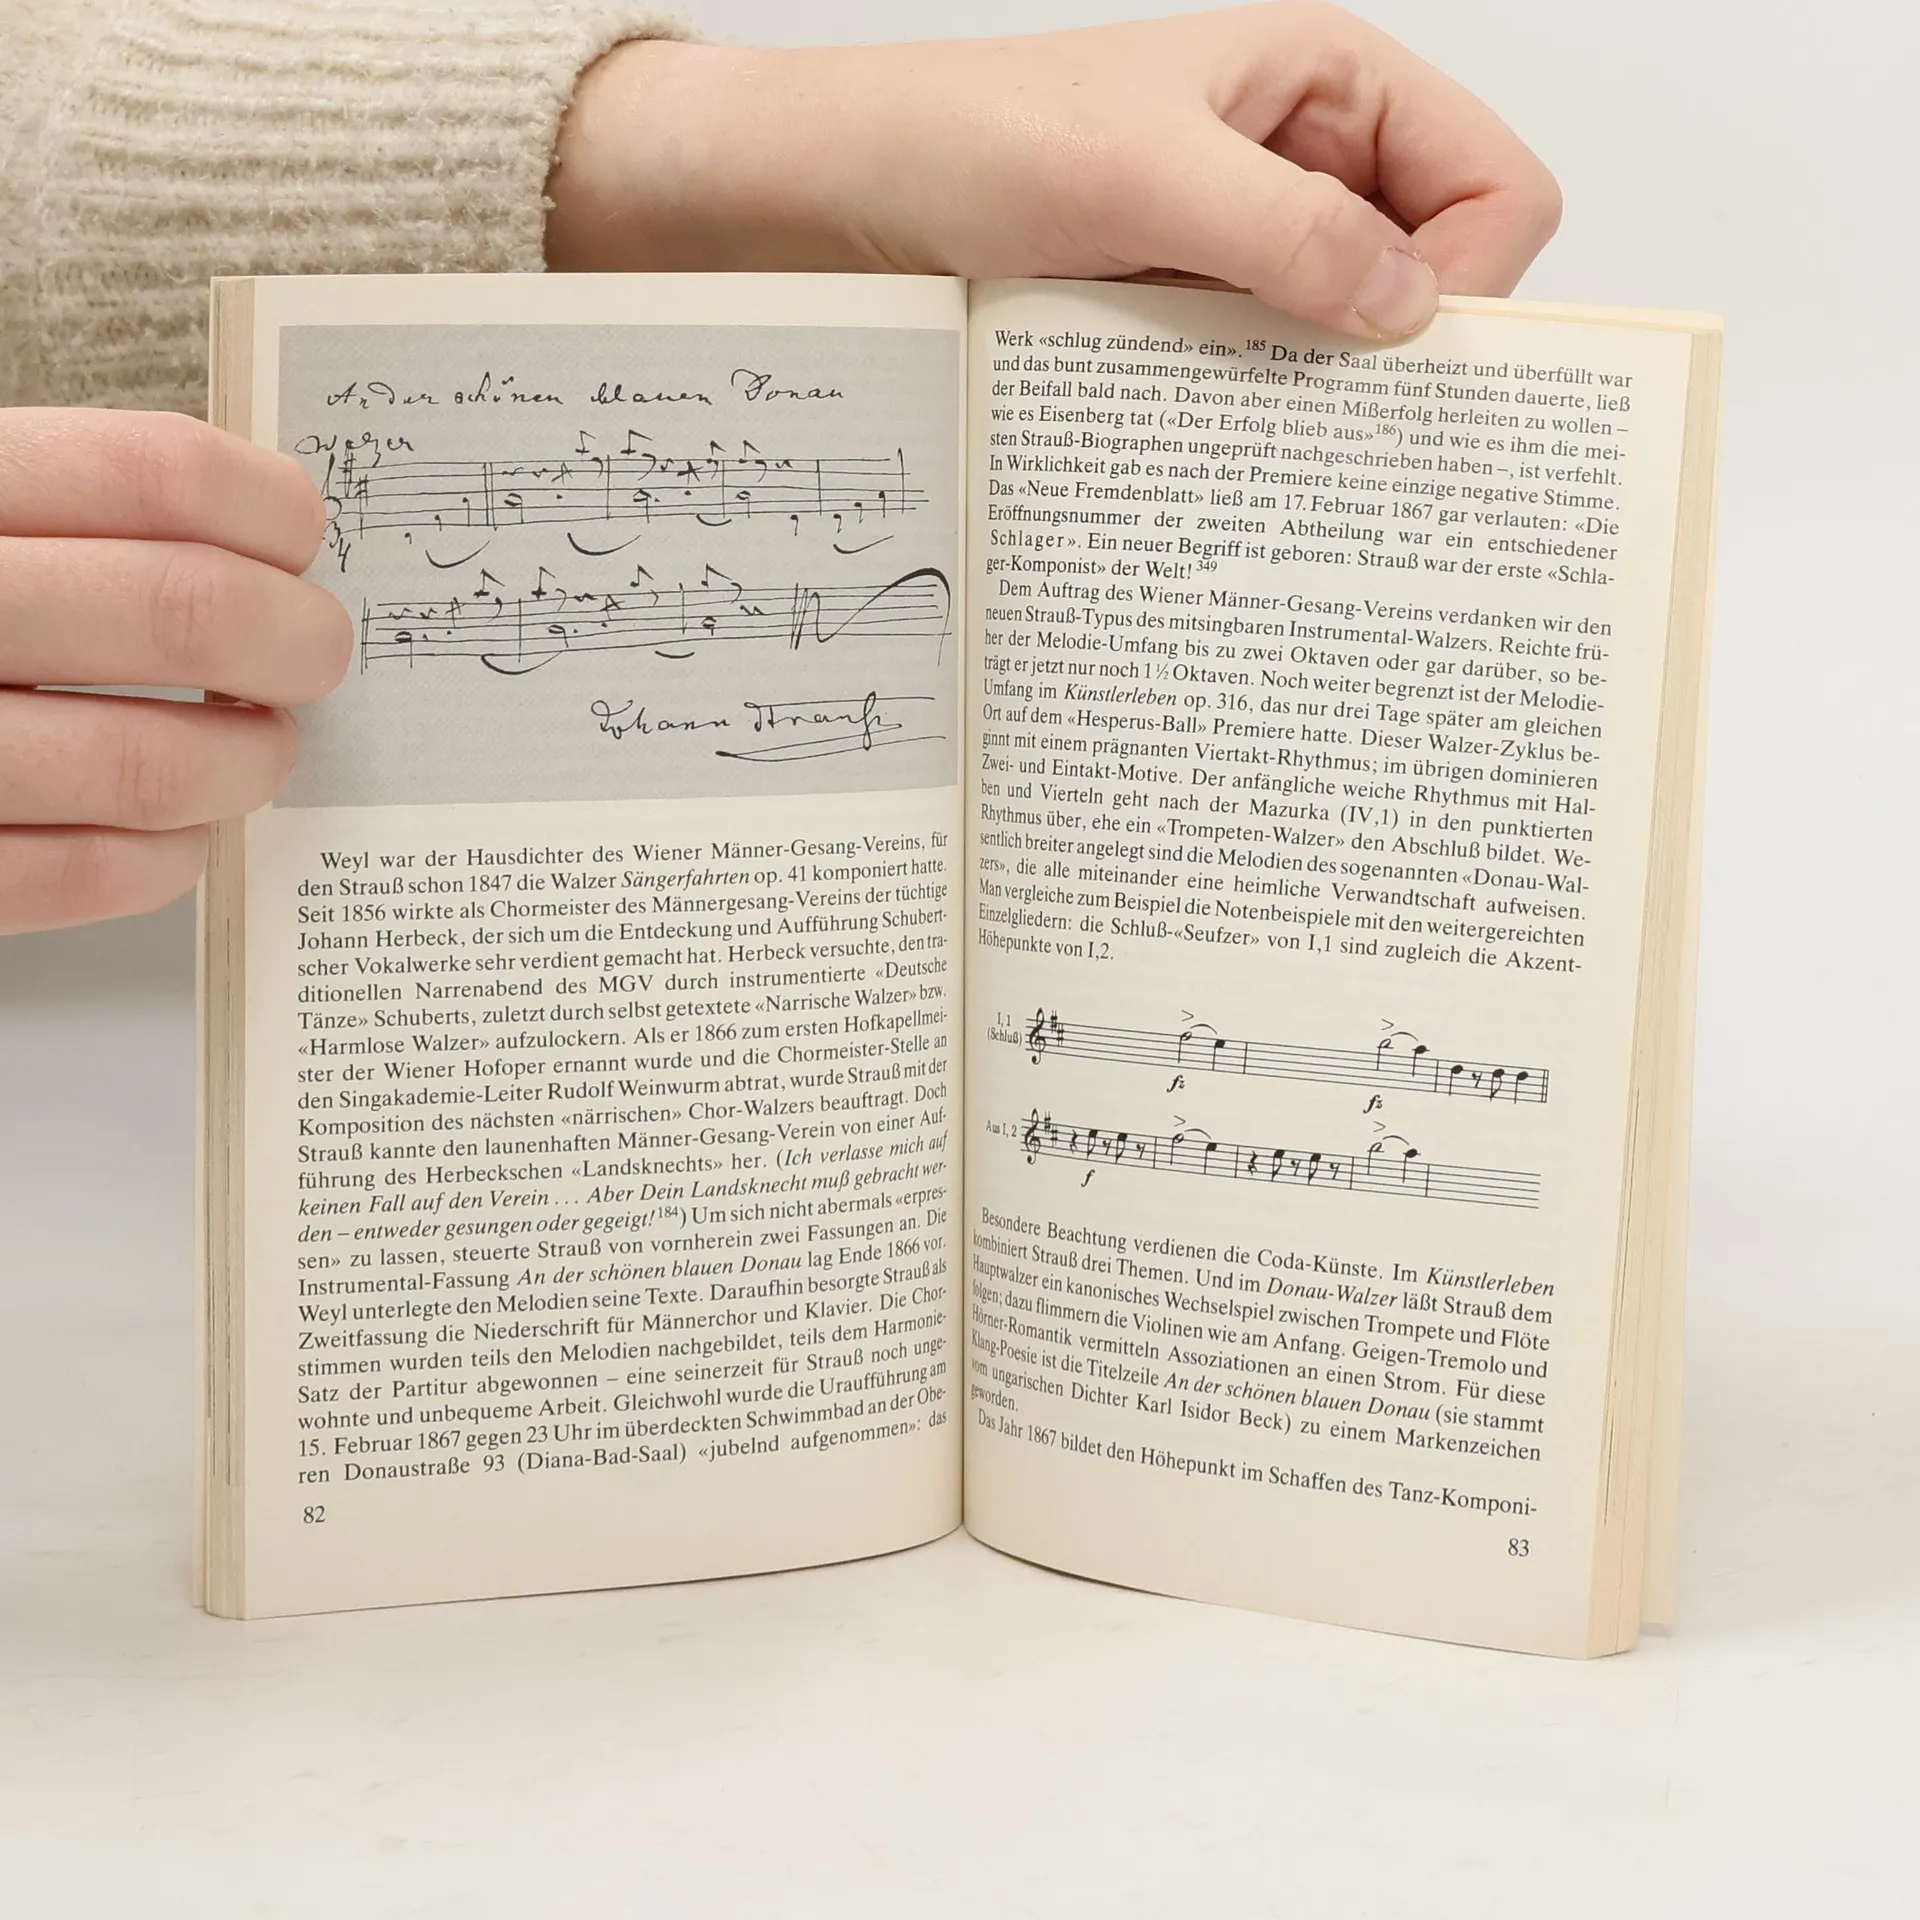 An der schönen blauen Donau
Walzer
Johann Strauß
Weyl war der Hausdichter des Wiener Männer-Gesang-Vereins, für
den Strauß schon 1847 die Walzer Sängerfahrten op. 41 komponiert hatte.
Seit 1856 wirkte als Chormeister des Männergesang-Vereins der tüchtige
Johann Herbeck, der sich um die Entdeckung und Aufführung Schubert-
scher Vokalwerke sehr verdient gemacht hat. Herbeck versuchte, den tra-
ditionellen Narrenabend des MGV durch instrumentierte «Deutsche
Tänze» Schuberts, zuletzt durch selbst getextete «Narrische Walzer» bzw.
«Harmlose Walzer» aufzulockern. Als er 1866 zum ersten Hofkapellmei-
ster der Wiener Hofoper ernannt wurde und die Chormeister-Stelle an
den Singakademie-Leiter Rudolf Weinwurm abtrat, wurde Strauß mit der
Komposition des nächsten «närrischen» Chor-Walzers beauftragt. Doch
Strauß kannte den launenhaften Männer-Gesang-Verein von einer Auf-
führung des Herbeckschen «Landsknechts» her. (Ich verlasse mich auf
keinen Fall auf den Verein . . . Aber Dein Landsknecht muß gebracht wer-
den – entweder gesungen oder gegeigt!184) Um sich nicht abermals «erpres-
sen» zu lassen, steuerte Strauß von vornherein zwei Fassungen an. Die
Instrumental-Fassung An der schönen blauen Donau lag Ende 1866 vor.
Weyl unterlegte den Melodien seine Texte. Daraufhin besorgte Strauß als
Zweitfassung die Niederschrift für Männerchor und Klavier. Die Chor-
stimmen wurden teils den Melodien nachgebildet, teils dem Harmonie-
Satz der Partitur abgewonnen – eine seinerzeit für Strauß noch unge-
wohnte und unbequeme Arbeit. Gleichwohl wurde die Uraufführung am
15. Februar 1867 gegen 23 Uhr im überdeckten Schwimmbad an der Obe-
ren Donaustraße 93 (Diana-Bad-Saal) «jubelnd aufgenommen»: das
82
Werk «schlug zündend» ein».185 Da der Saal überheizt und überfüllt war
und das bunt zusammengewürfelte Programm fünf Stunden dauerte, ließ
der Beifall bald nach. Davon aber einen Mißerfolg herleiten zu wollen –
wie es Eisenberg tat («Der Erfolg blieb aus»186) und wie es ihm die mei-
sten Strauß-Biographen ungeprüft nachgeschrieben haben –, ist verfehlt.
In Wirklichkeit gab es nach der Premiere keine einzige negative Stimme.
Das «Neue Fremdenblatt» ließ am 17. Februar 1867 gar verlauten: «Die
Eröffnungsnummer der zweiten Abtheilung war ein entschiedener
Schlager». Ein neuer Begriff ist geboren: Strauß war der erste «Schla-
ger-Komponist» der Welt!349
Dem Auftrag des Wiener Männer-Gesang-Vereins verdanken wir den
neuen Strauß-Typus des mitsingbaren Instrumental-Walzers. Reichte frü-
her der Melodie-Umfang bis zu zwei Oktaven oder gar darüber, so be-
trägt er jetzt nur noch 1½ Oktaven. Noch weiter begrenzt ist der Melodie-
Umfang im Künstlerleben op. 316, das nur drei Tage später am gleichen
Ort auf dem «Hesperus-Ball» Premiere hatte. Dieser Walzer-Zyklus be-
ginnt mit einem prägnanten Viertakt-Rhythmus; im übrigen dominieren
Zwei- und Eintakt-Motive. Der anfängliche weiche Rhythmus mit Hal-
ben und Vierteln geht nach der Mazurka (IV,1) in den punktierten
Rhythmus über, ehe ein «Trompeten-Walzer» den Abschluß bildet. We-
sentlich breiter angelegt sind die Melodien des sogenannten «Donau-Wal-
zers», die alle miteinander eine heimliche Verwandtschaft aufweisen.
Man vergleiche zum Beispiel die Notenbeispiele mit den weitergereichten
Einzelgliedern: die Schluß-«Seufzer» von I,1 sind zugleich die Akzent-
Höhepunkte von I,2.
I, 1
(Schluß)
fz
fz
Aus I, 2
f
Besondere Beachtung verdienen die Coda-Künste. Im Künstlerleben
kombiniert Strauß drei Themen. Und im Donau-Walzer läßt Strauß dem
Hauptwalzer ein kanonisches Wechselspiel zwischen Trompete und Flöte
folgen; dazu flimmern die Violinen wie am Anfang. Geigen-Tremolo und
Hörner-Romantik vermitteln Assoziationen an einen Strom. Für diese
Klang-Poesie ist die Titelzeile An der schönen blauen Donau (sie stammt
vom ungarischen Dichter Karl Isidor Beck) zu einem Markenzeichen
geworden.
Das Jahr 1867 bildet den Höhepunkt im Schaffen des Tanz-Komponi-
83